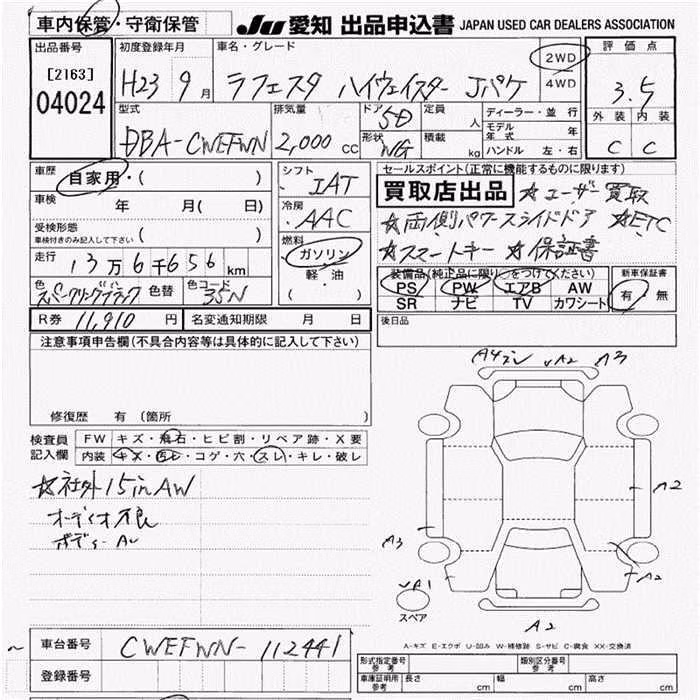 車内保管・守衛保管 JU 愛知 出品申込書 JAPAN USED CAR DEALERS ASSOCIATION
出品番号 初度登録年月 車名・グレード 2WD 評価点
[2163] H23 9月 ラフェスタ ハイウェイスター Jパケ 4WD 3.5
04024 型式 排気量 ドア 5D 定員 人 ディーラー・並行 外装 内装
DBA-CWEFWN 2,000cc 形状 WG 積載 kg モデル年式 年 C C
ハンドル 左・右
車歴 自家用・( ) シフト IAT セールスポイント(正常に機能するものに限ります)
車検 年 月( 日) 冷房 AAC 買取店出品 ☆ユーザー買取
受検形態 ( ) ☆両側パワースライドドア ☆ETC
車検付きのみ記入して下さい 燃料 ☆スマートキー ☆保証書
走行 13万6千656km ガソリン 装備品(純正品に限り○をつけてください) 新車保証書
軽・油 PS PW エアB AW 有・無
色 スパークリングブラック 色替 色コード 35N ( ) SR ナビ TV カワシート
R券 11,910円 名変通知期限 月 日 後日品
注意事項申告欄(不具合内容等は具体的に記入して下さい)
修復歴 有(箇所
検査員 FW キズ・飛石・ヒビ割・リペア跡・X要
記入欄 内装 キズ・汚レ・コゲ・穴・スレ・キレ・破レ
☆社外15inAW
オーディオ不良
A2 A3
A2
A3
A2
A1
スペア
A2
A-キズ E-エクボ U-凹み W-補修跡 S-サビ C-腐食 XX-交換済
車台番号 CWEFWN-112441
登録番号
形式指定番号 参考 類別区分番号 参考
車庫証明用 参考 長さ cm 幅 cm 高さ cm